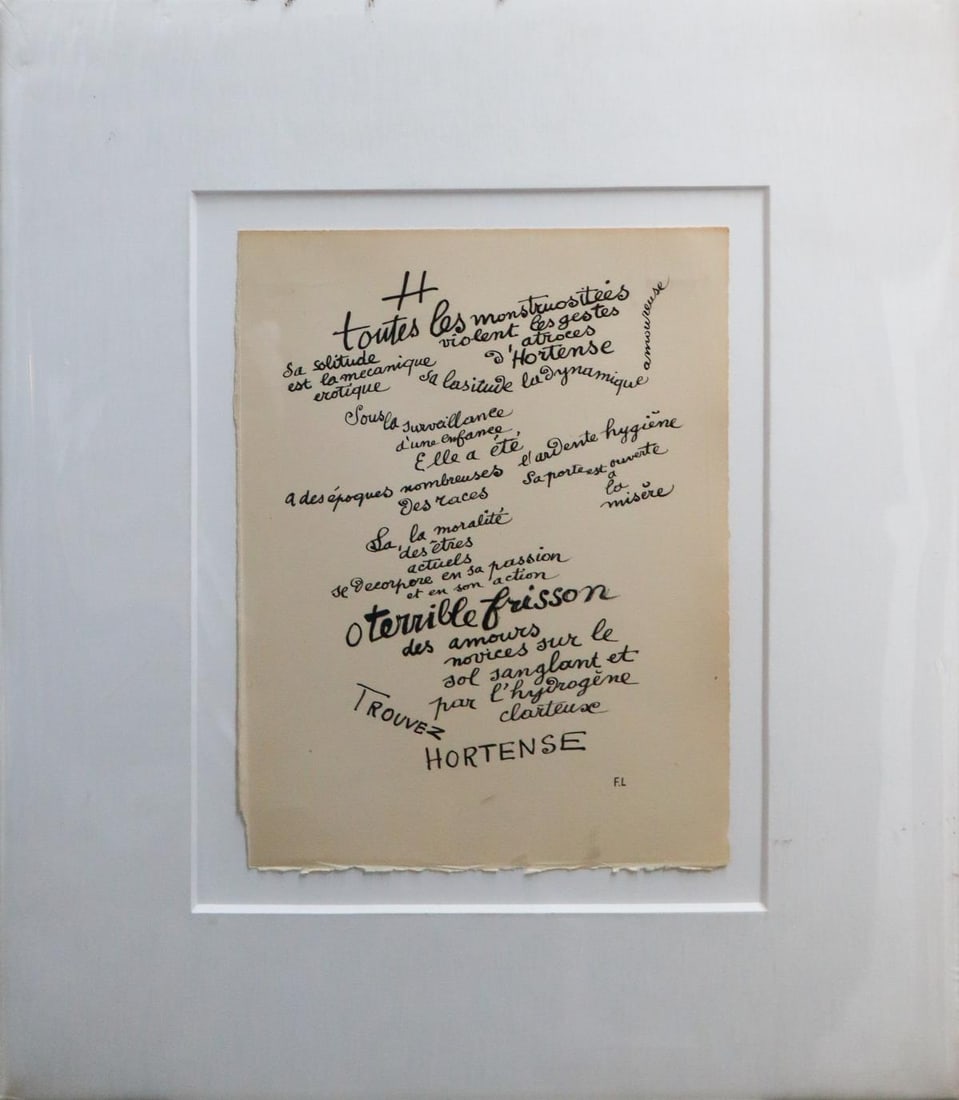 H
toutes les monstruositées
violent les gestes
atroces
d'Hortense
Sa solitude
est la mécanique
erotique
Sa lasitude la dynamique
amoureuse
Sous la surveillance
d'une enfance
Elle a été,
a des époques nombreuses
l'ardente hygiène
Des races
Sa porte est ouverte
à
la
misère
La, la moralité
des êtres
actuels
se decorpore en sa passion
et en son action
O terrible frisson
des amours
novices sur le
sol sanglant et
par l'hydrogène
clarteuse
TROUVEZ
HORTENSE
F.L